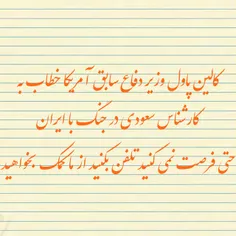 کالین پاول وزیر دفاع سابق آمریکا خطاب به
کارشناس سعودی در جنگ با ایران
حتی فرصت نمی کنید تلفن بکنید از ما کمک بخواهید